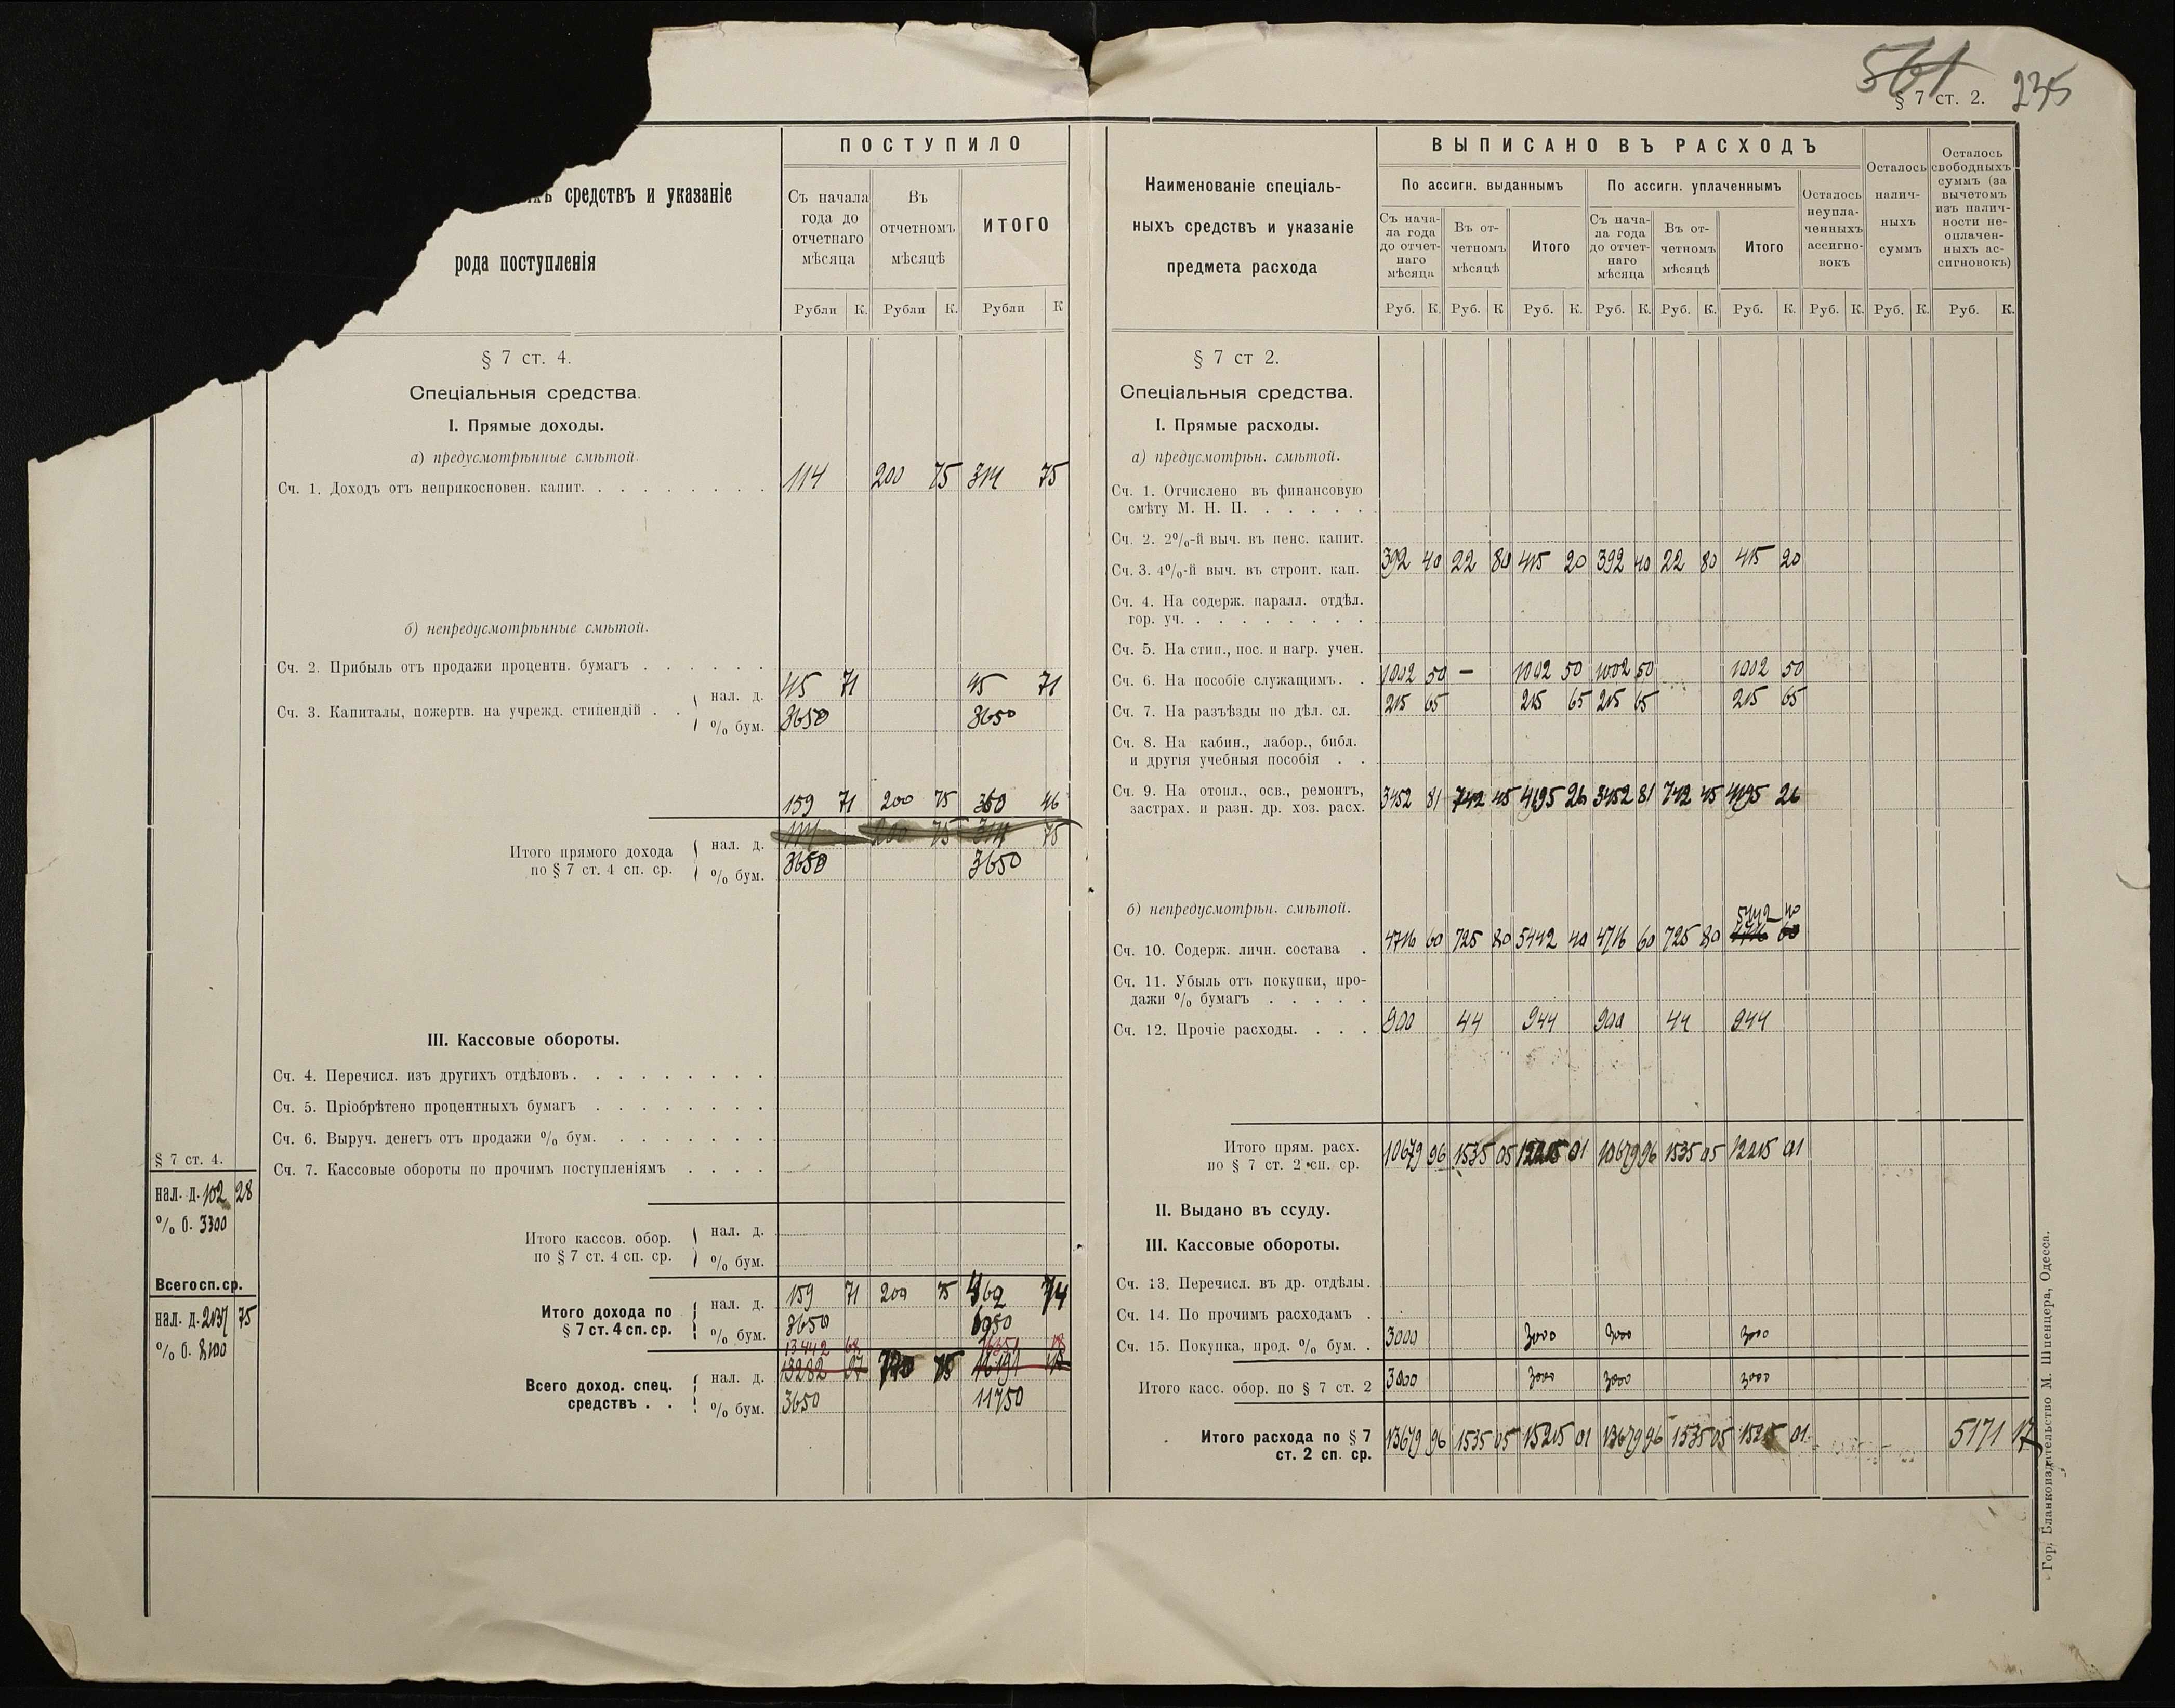 561
§ 7 ст. 2.
235
средствъ и указаніе
рода поступленія
ПОСТУПИЛО
Съ начала
года до
отчетнаго
мѣсяца
Въ
отчетномъ
мѣсяцѣ
ИТОГО
Рубли К. Рубли К. Рубли К
§ 7 ст. 4.
Спеціальныя средства.
I. Прямые доходы.
а) предусмотрѣнные смѣтой.
Сч. 1. Доходъ отъ неприкосновен. капит. 114 200 75 314 75
б) непредусмотрѣнные смѣтой.
Сч. 2. Прибыль отъ продажи процентн. бумагъ
Сч. 3. Капиталы, пожертв. на учрежд. стипендій
нал. д. 45 71 45 71
% бум. 3650 3650
159 71 200 75 360 46
Итого прямого дохода
по § 7 ст. 4 сп. ср.
нал. д. 114 200 75 314 75
% бум. 3650 3650
III. Кассовые обороты.
Сч. 4. Перечисл. изъ другихъ отдѣловъ.
Сч. 5. Пріобрѣтено процентныхъ бумагъ
Сч. 6. Выруч. денегъ отъ продажи % бум.
Сч. 7. Кассовые обороты по прочимъ поступленіямъ
Итого кассов. обор.
по § 7 ст. 4 сп. ср.
нал. д.
% бум.
Итого дохода по
§ 7 ст. 4 сп. ср.
нал. д. 159 71 200 75 462 74
% бум. 3650 6950
13442 68 16351 18
Всего доход. спец.
средствъ . .
нал. д. 13282 97 740 75
% бум. 3650 11750
§ 7 ст. 4.
нал. д. 102 28
% б. 3300
Всего сп. ср.
нал. д. 2137 75
% б. 8100
Наименованіе спеціаль-
ныхъ средствъ и указаніе
предмета расхода
ВЫПИСАНО ВЪ РАСХОДЪ
По ассигн. выданнымъ
По ассигн. уплаченнымъ
Съ нача-
ла года
до отчет-
наго
мѣсяца
Въ от-
четномъ
мѣсяцѣ
Итого
Съ нача-
ла года
до отчет-
наго
мѣсяца
Въ от-
четномъ
мѣсяцѣ
Итого
Осталось
неупла-
ченныхъ
ассигно-
вокъ
Осталось
налич-
ныхъ
суммъ
Осталось
свободныхъ
суммъ (за
вычетомъ
изъ налич-
ности не-
оплачен-
ныхъ ас-
сигновокъ)
Руб. К. Руб. К Руб. К. Руб. К. Руб. К. Руб. К. Руб. К. Руб. К. Руб. К.
§ 7 ст 2.
Спеціальныя средства.
I. Прямые расходы.
а) предусмотрѣн. смѣтой.
Сч. 1. Отчислено въ финансовую
смѣту М. Н. П.
Сч. 2. 2%-й выч. въ пенс. капит.
Сч. 3. 4%-й выч. въ строит. кап. 392 40 22 80 415 20 392 40 22 80 415 20
Сч. 4. На содерж. паралл. отдѣл.
гор. уч.
Сч. 5. На стип., пос. и нагр. учен.
Сч. 6. На пособіе служащимъ. 1002 50 — 1002 50 1002 50 1002 50
Сч. 7. На разъѣзды по дѣл. сл. 215 65 215 65 215 65 215 65
Сч. 8. На кабин., лабор., библ.
и другія учебныя пособія
Сч. 9. На отопл., осв., ремонтъ,
застрах. и разн. др. хоз. расх. 3452 81 742 45 4195 26 3452 81 742 45 4195 26
б) непредусмотрѣн. смѣтой.
5442 40
Сч. 10. Содерж. личн. состава 4716 60 725 80 5442 40 4716 60 725 80 4716 60
Сч. 11. Убыль отъ покупки, про-
дажи % бумагъ
Сч. 12. Прочіе расходы. 900 44 944 900 44 944
Итого прям. расх.
по § 7 ст. 2 сп. ср. 10679 96 1535 05 12215 01 10679 96 1535 05 12215 01
II. Выдано въ ссуду.
III. Кассовые обороты.
Сч. 13. Перечисл. въ др. отдѣлы.
Сч. 14. По прочимъ расходамъ
Сч. 15. Покупка, прод. % бум. 3000 3000 3000 3000
Итого касс. обор. по § 7 ст. 2 3000 3000 3000 3000
Итого расхода по § 7
ст. 2 сп. ср. 13679 96 1535 05 15215 01 13679 96 1535 05 15215 01 5171 17
Гор. Бланкоиздательство М. Шпенцера, Одесса.